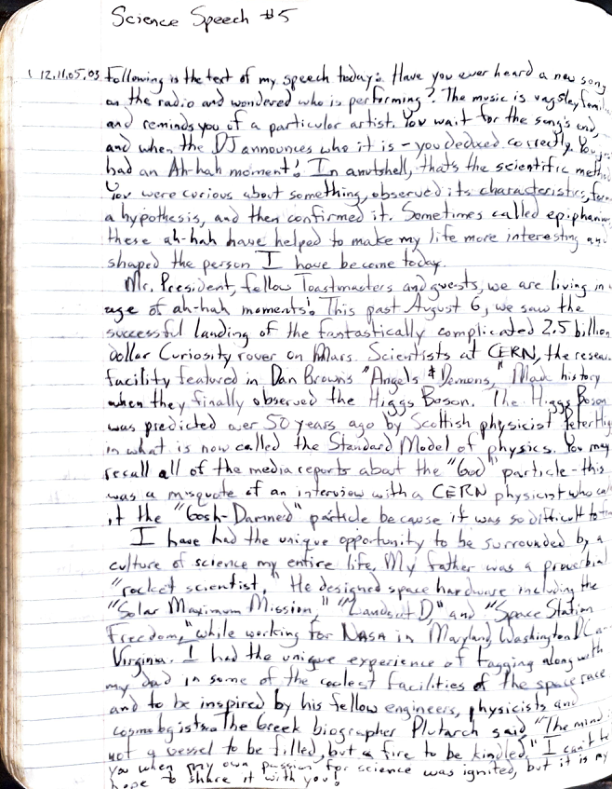 Science Speech #5
12.11.05.03 Following is the text of my speech today: Have you ever heard a new song
on the radio and wondered who is performing? The music is vagsley famili
and reminds you of a particular artist. You wait for the song's end,
and when the DJ announces who it is - you deduced correctly. You
had an Ah-hah moment! In a nutshell, thats the scientific metho
You were curious about something, observed its characteristics, for
a hypothesis, and then confirmed it. Sometimes called epiphanie
these ah-hah have helped to make my life more interesting an
shaped the person I have become today.
Mr. President, fellow Toastmasters and guests, we are living in
age of ah-hah moments! This past August 6, we saw the
successful landing of the fantastically complicated 2.5 billion
dollar Curiosity rover on Mars. Scientists at CERN, the resea
facility featured in Dan Brown's "Angels & Demons," Mad history
when they finally observed the Higgs Boson. The Higgs Boson
was predicted over 50 years ago by Scottish physicist Peter Hig
in what is now called the Standard Model of physics. You may
recall all of the media reports about the "God" particle - this
was a misquote of an interview with a CERN physicist who
it the "Gosh-Damned" particle because it was so difficult to
I have had the unique opportunity to be surrounded by a
culture of science my entire life. My father was a proverbial
"rocket scientist." He designed space hardware including the
"Solar Maximum Mission," "Landsat D," and "Space Station
Freedom," while working for NASA in Maryland, Washington DC a
Virginia. I had the unique experience of tagging along with
my dad in some of the coolest facilities of the space race
and to be inspired by his fellow engineers, physicists and
cosmologists. The Greek biographer Plutarch said "The mind i
not a vessel to be filled, but a fire to be kindled." I can't te
you when my own passion for science was ignited, but it is my
hope to share it with you!